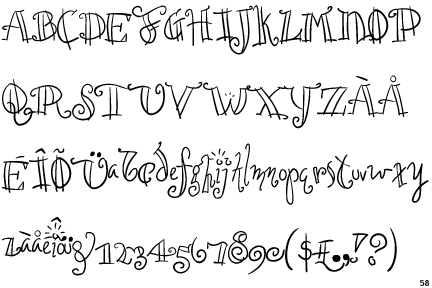 ABCDEFGHIJKLMNOP
QRSTUVWXYZÀÅ
ÉÎÕÜabcdefghijklmnopqrstuvwxy
zàåéîõü&1234567890($£.,!?)
58